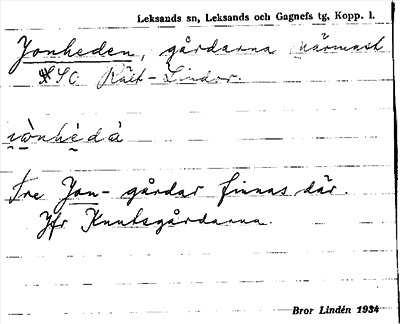 Leksands sn, Leksands och Gagnefs tg, Kopp. l.
Jonheden, gårdarna närmast
SO Rält-Lindor.
i̯ònhèdà
Tre Jon- gårdar finnas där.
Jfr Knutsgårdarna.
Bror Lindén 1934